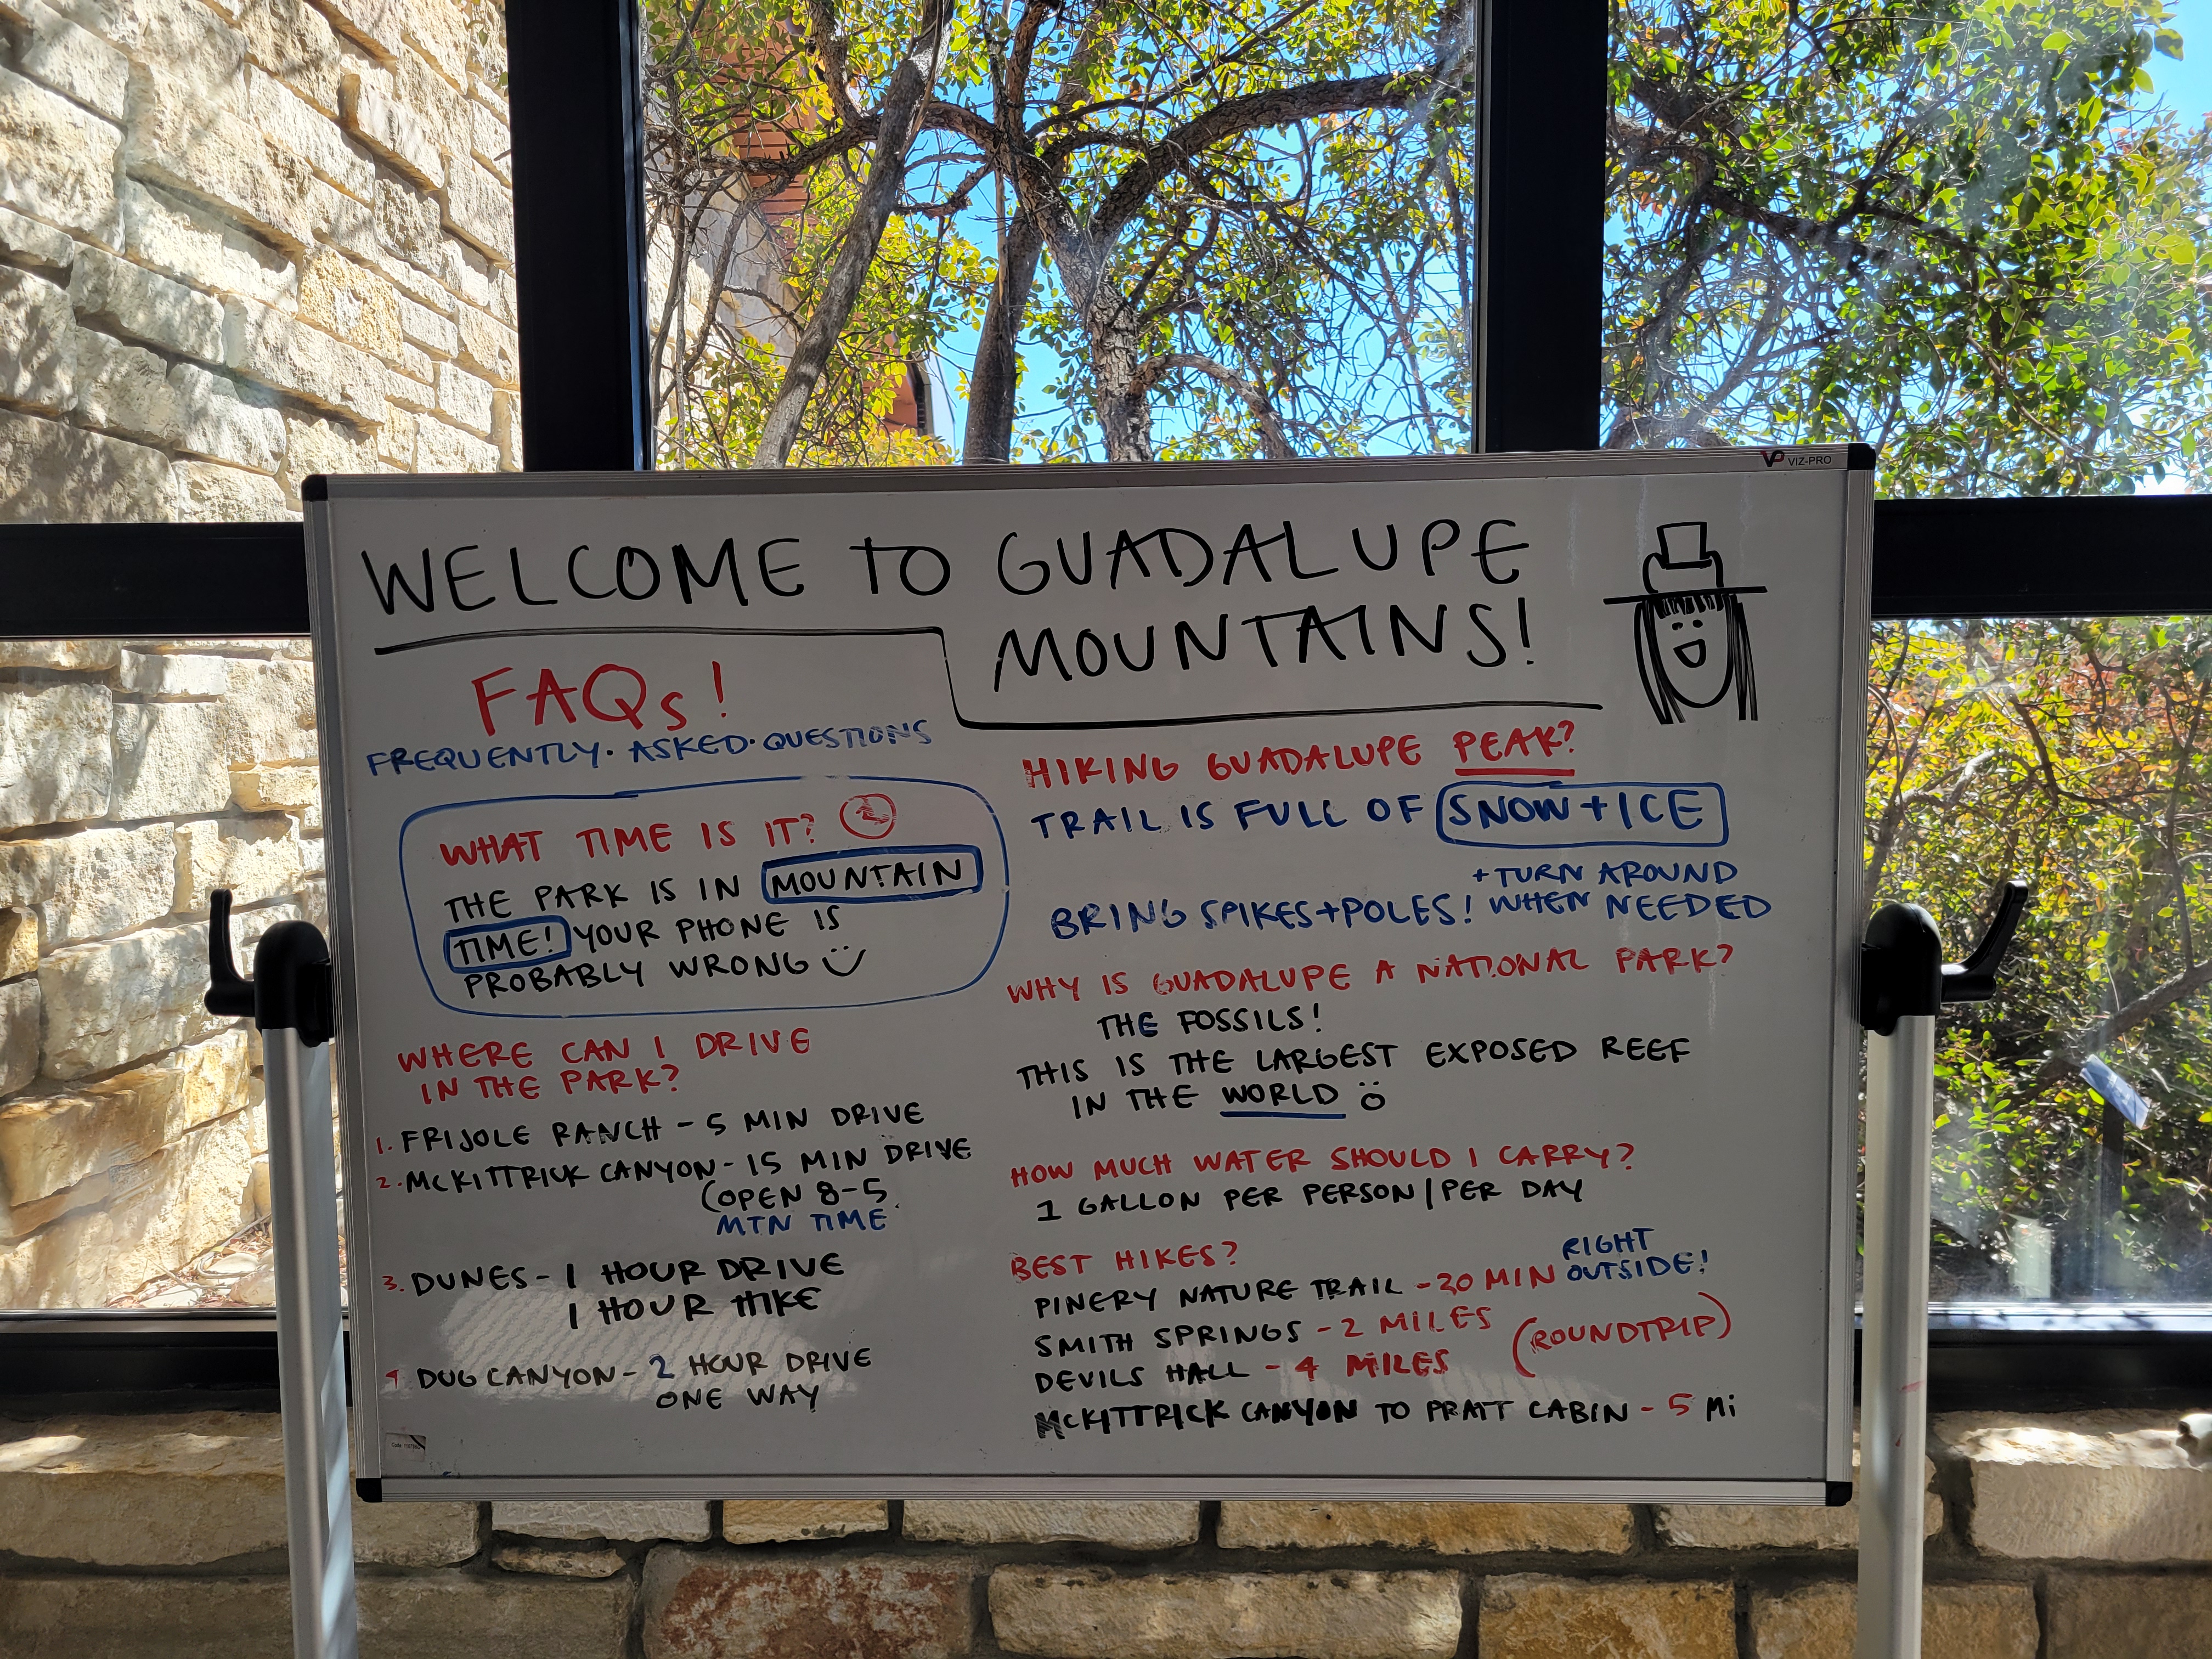 VP VIZ-PRO
WELCOME TO GUADALUPE
MOUNTAINS!
FAQs!
FREQUENTLY· ASKED· QUESTIONS
WHAT TIME IS IT?
THE PARK IS IN MOUNTAIN
TIME! YOUR PHONE IS
PROBABLY WRONG
WHERE CAN I DRIVE
IN THE PARK?
1. FRIJOLE RANCH - 5 MIN DRIVE
2. MCKITTRICK CANYON - 15 MIN DRIVE
(OPEN 8-5
MTN TIME
3. DUNES - 1 HOUR DRIVE
1 HOUR HIKE
4. DOG CANYON - 2 HOUR DRIVE
ONE WAY
HIKING GUADALUPE PEAK?
TRAIL IS FULL OF SNOW + ICE
BRING SPIKES + POLES!
+ TURN AROUND
WHEN NEEDED
WHY IS GUADALUPE A NATIONAL PARK?
THE FOSSILS!
THIS IS THE LARGEST EXPOSED REEF
IN THE WORLD
HOW MUCH WATER SHOULD I CARRY?
1 GALLON PER PERSON/PER DAY
BEST HIKES?
PINERY NATURE TRAIL - 30 MIN RIGHT
OUTSIDE!
SMITH SPRINGS - 2 MILES
DEVILS HALL - 4 MILES (ROUNDTRIP)
MCKITTRICK CANYON TO PRATT CABIN - 5 Mi